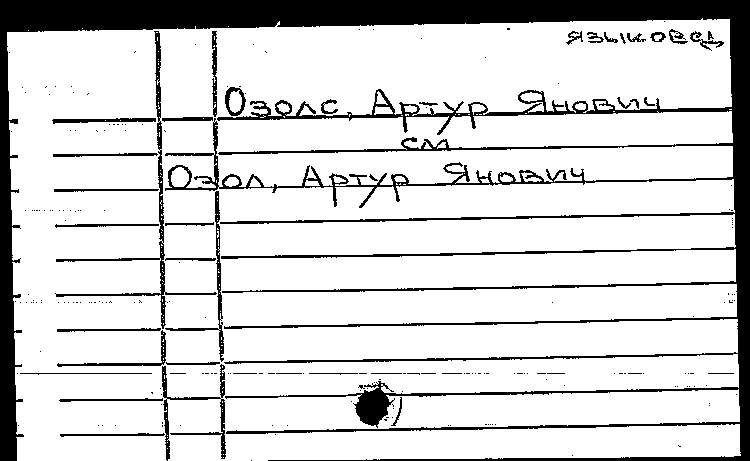 языковед
Озолс, Артур Янович
см
Озол, Артур Янович